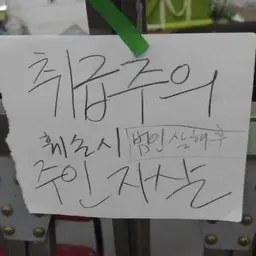 취급주의
훼손시 범인 살해후
주인 자살